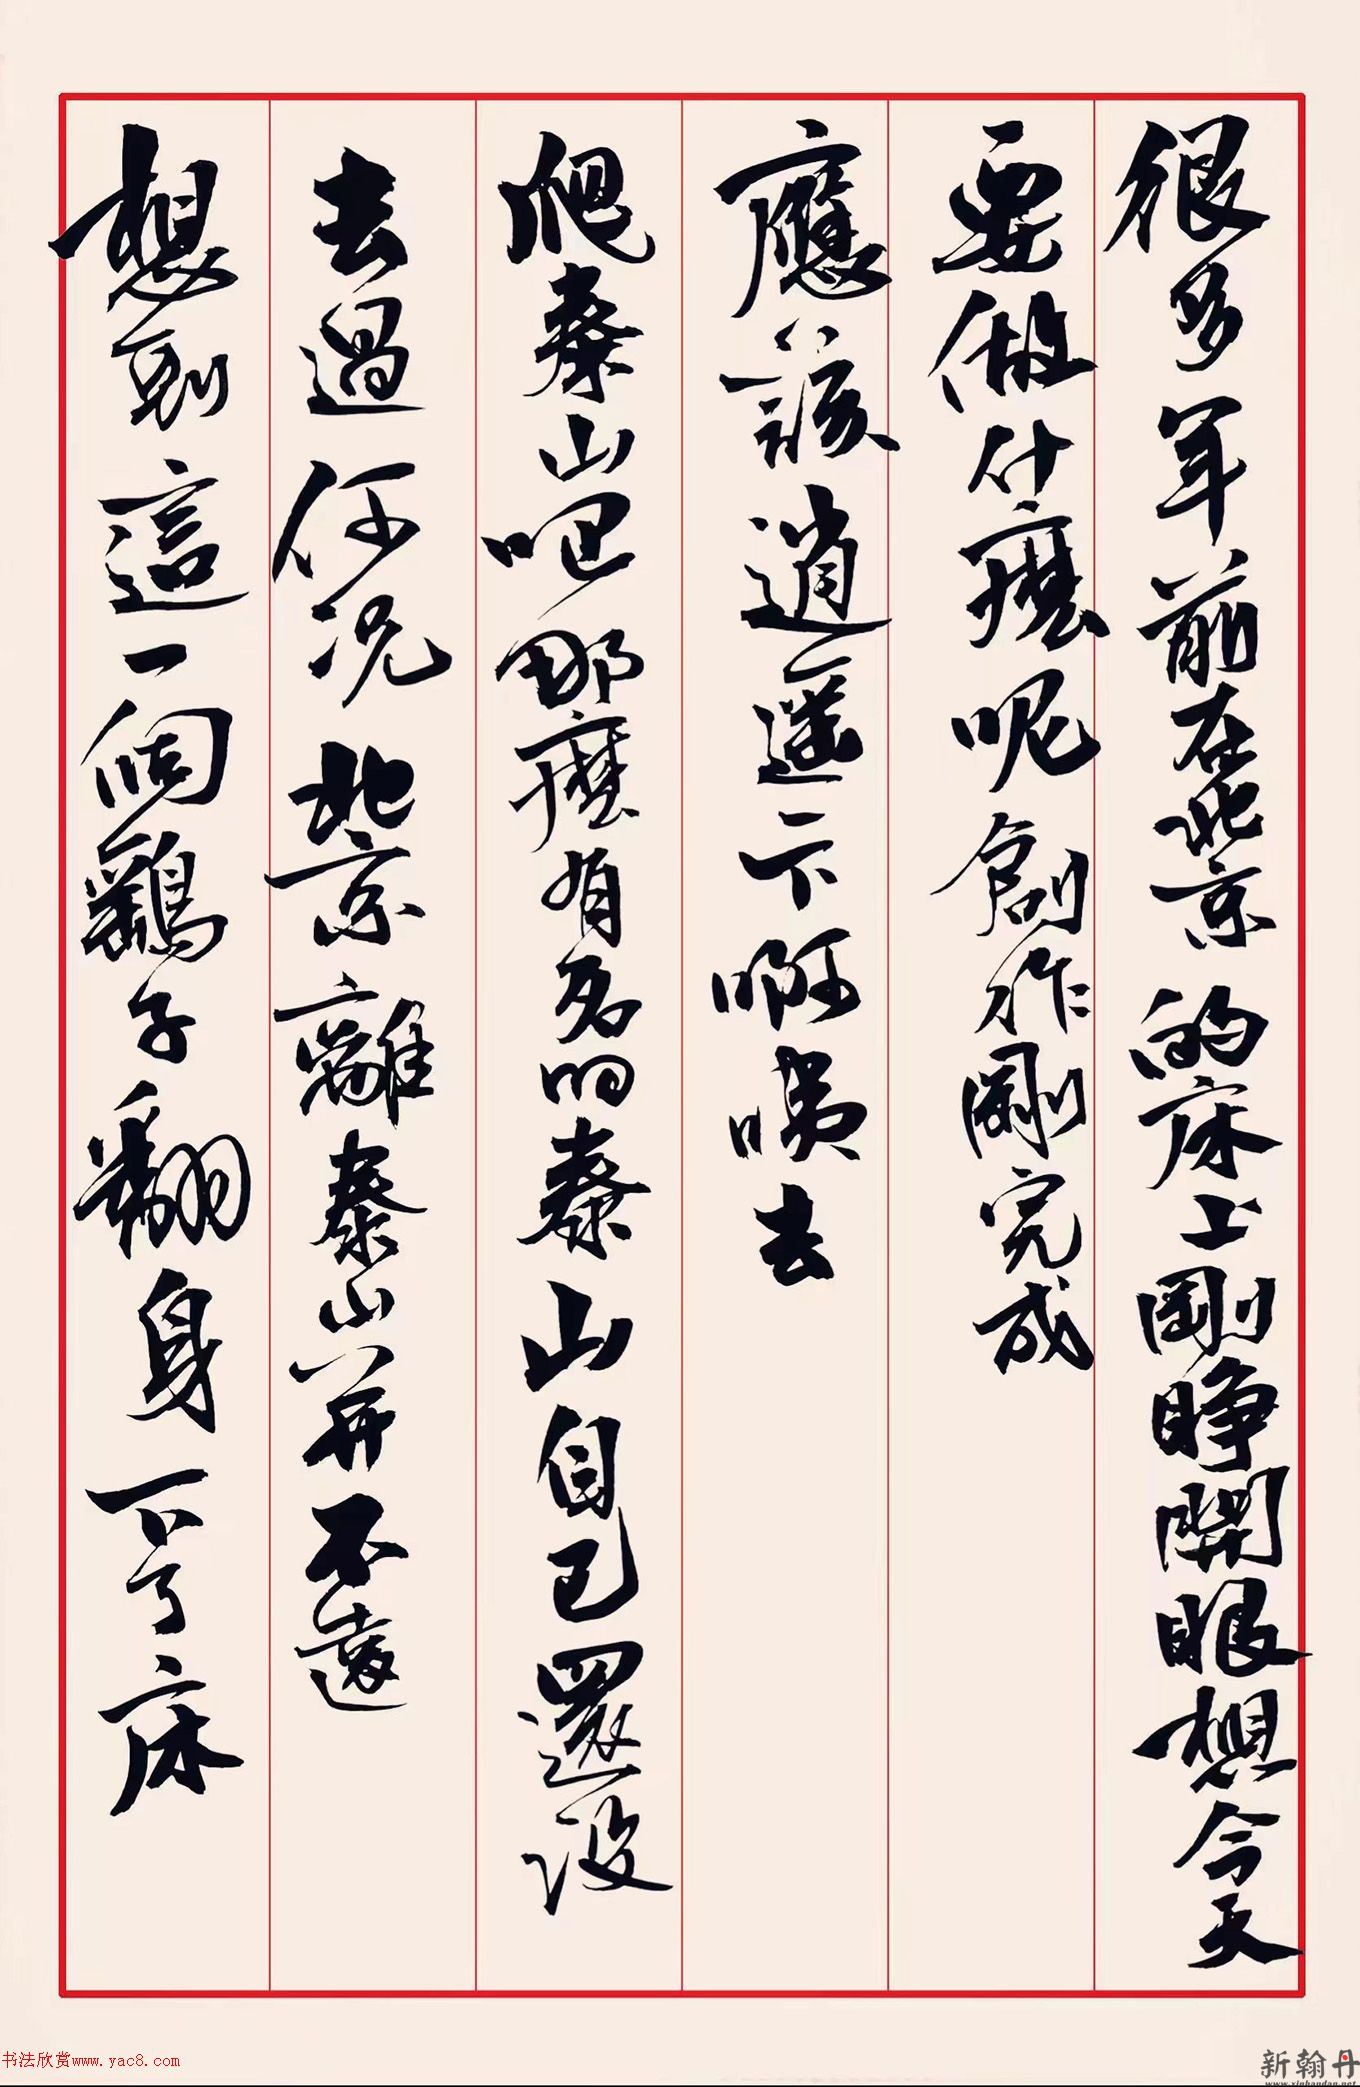 很多年前在北京的床上剛睜開眼想今天
要做什麽呢創作剛完成
應該逍遥一下啊唉去
爬泰山吧那麽有名的泰山自己還没
去過何况北京離泰山并不遠
想到這一個鷂子翻身下了床
书法欣赏www.yac8.com
新翰丹
www.xinhandan.net